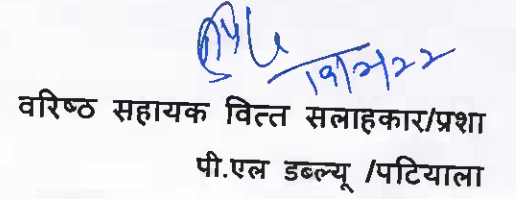 19/2/22
वरिष्ठ सहायक वित्त सलाहकार/प्रशा
पी.एल डब्ल्यू /पटियाला